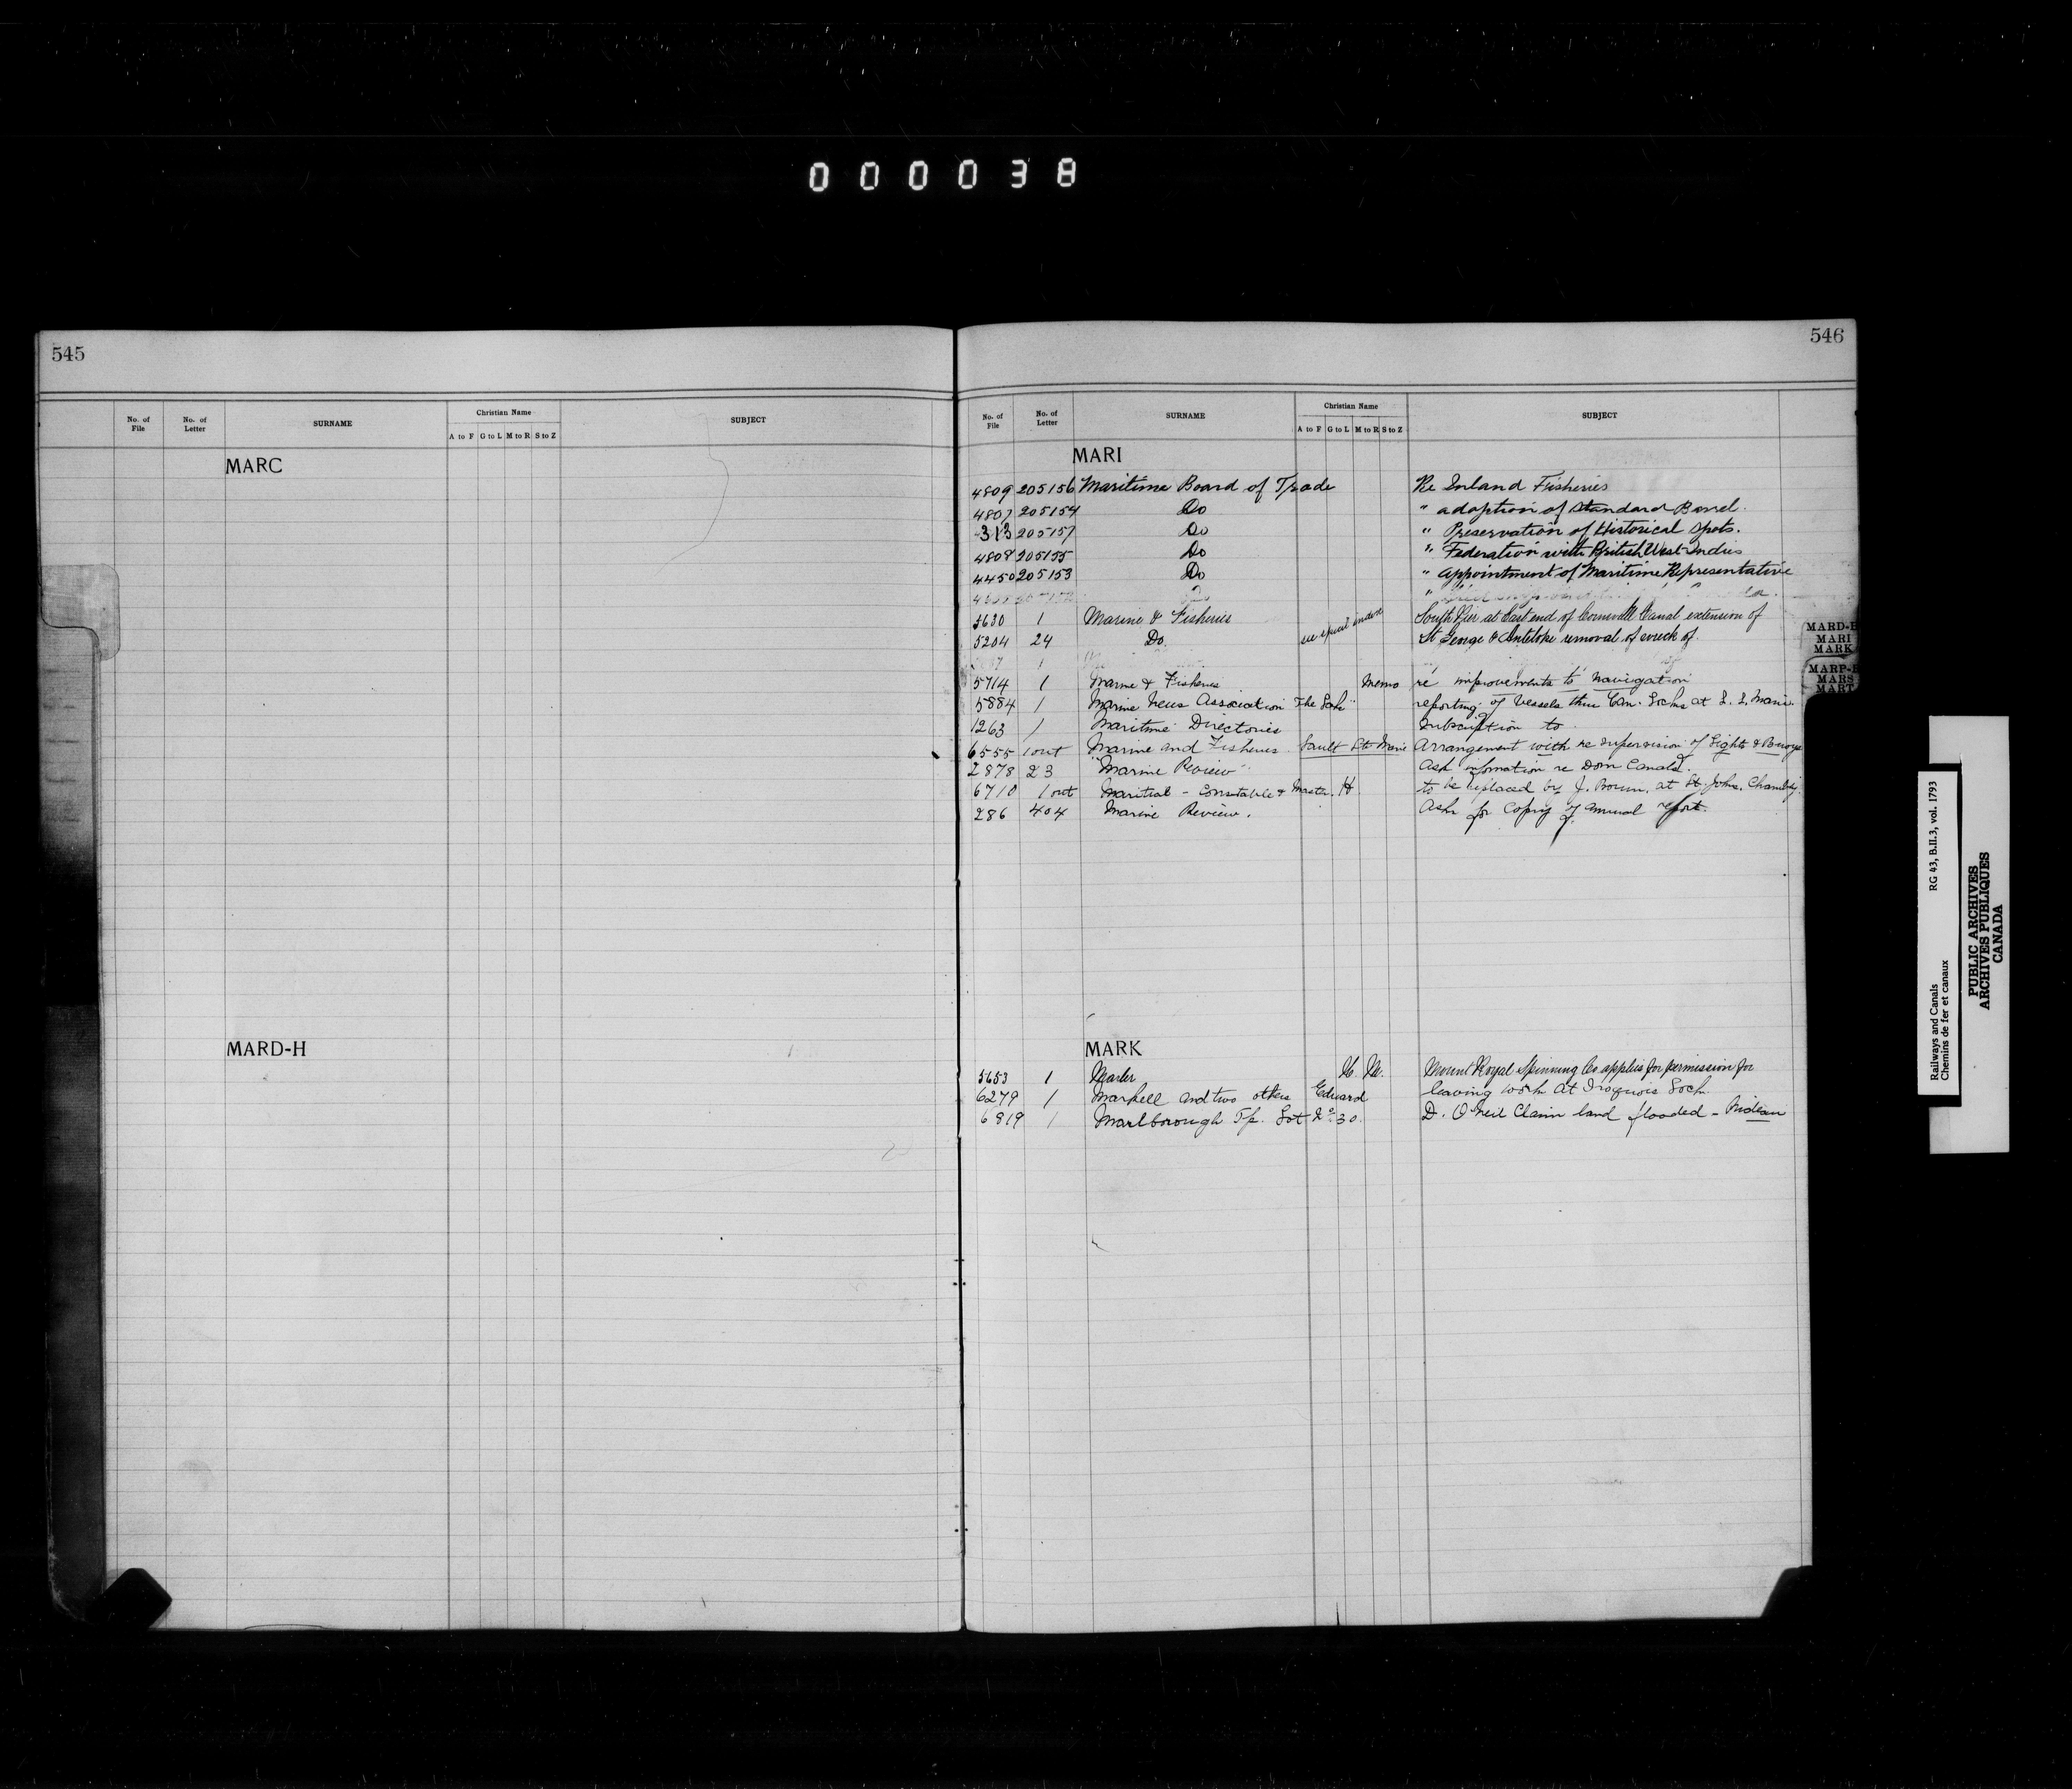 000038
545
No. of File No. of Letter SURNAME Christian Name SUBJECT
A to F G to L M to R S to Z
MARC
MARD-H
546
No. of File No. of Letter SURNAME Christian Name SUBJECT
A to F G to L M to R S to Z
MARI
4809 205156 Maritime Board of Trade Re Inland Fisheries
4807 205154 Do " adoption of Standard Barrel.
313 205157 Do " Preservation of Historical Spots.
4808 205155 Do " Federation with British West Indies
4450 205153 Do " appointment of Maritime Representative
Do "
5630 1 Marine & Fisheries South Pier at East end of Cornwall Canal extension of
5204 24 Do. see special index St George & Antelope removal of wreck of.
1
5714 1 Marine & Fisheries Memo re improvements to navigation
5884 1 Marine News Association The reporting of Vessels thru Can. Locks at S. S. Marie.
1263 1 Maritime Directories Subscription to
6555 1 out Marine and Fisheries Sault Ste Marie Arrangement with re supervision of Lights & Buoys
2878 23 "Marine Review" Ask information re Dom Canals.
6710 1 out - Constable & Master. H to be replaced by J. at St. Johns, Chambly.
286 404 Marine Review. Ask for Copy of annual report.
MARK
5653 1 Marler Mount Royal Spinning Co applies for permission for
6279 1 Markell and two others Edward leaving work at Iroquois Lock
6819 1 Marlborough Tp. Lot No. 30. D. O'Neil Claim land flooded - Rideau
MARD-H
MARI
MARK
MARS
MART
Railways and Canals RG 43, B.II.3, vol. 1793
Chemins de fer et canaux
PUBLIC ARCHIVES
ARCHIVES PUBLIQUES
CANADA